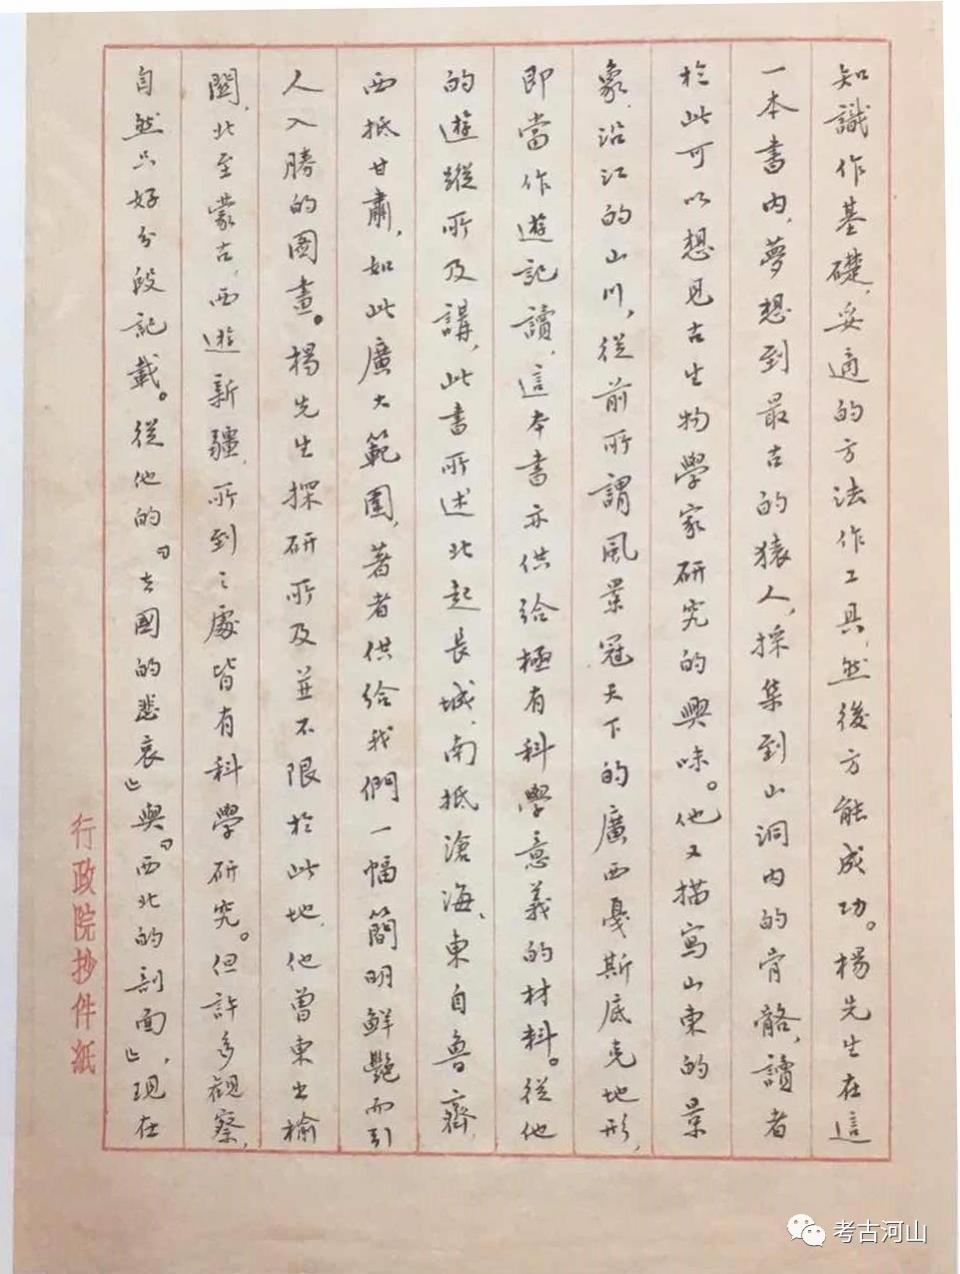 知識作基礎，妥適的方法作工具，然後方能成功。楊先生在這
一本書內，夢想到最古的猿人，採集到山洞內的骨骼，讀者
於此可以想見古生物學家研究的興味。他又描寫山東的景
象，沿江的山川，從前所謂風景冠天下的廣西戞斯底克地形，
即當作遊記讀，這本書亦供給極有科學意義的材料。從他
的遊蹤所及講，此書所述北起長城，南抵滄海，東自魯齊，
西抵甘肅，如此廣大範圍，著者供給我們一幅簡明鮮艷而引
人入勝的圖畫。楊先生探研所及並不限於此地，他曾東出榆
關，北至蒙古，西遊新疆，所到之處皆有科學研究。但許多觀察，
自然只好分段記載。從他的「去國的悲哀」與「西北的剖面」，現在
行政院抄件紙
考古河山